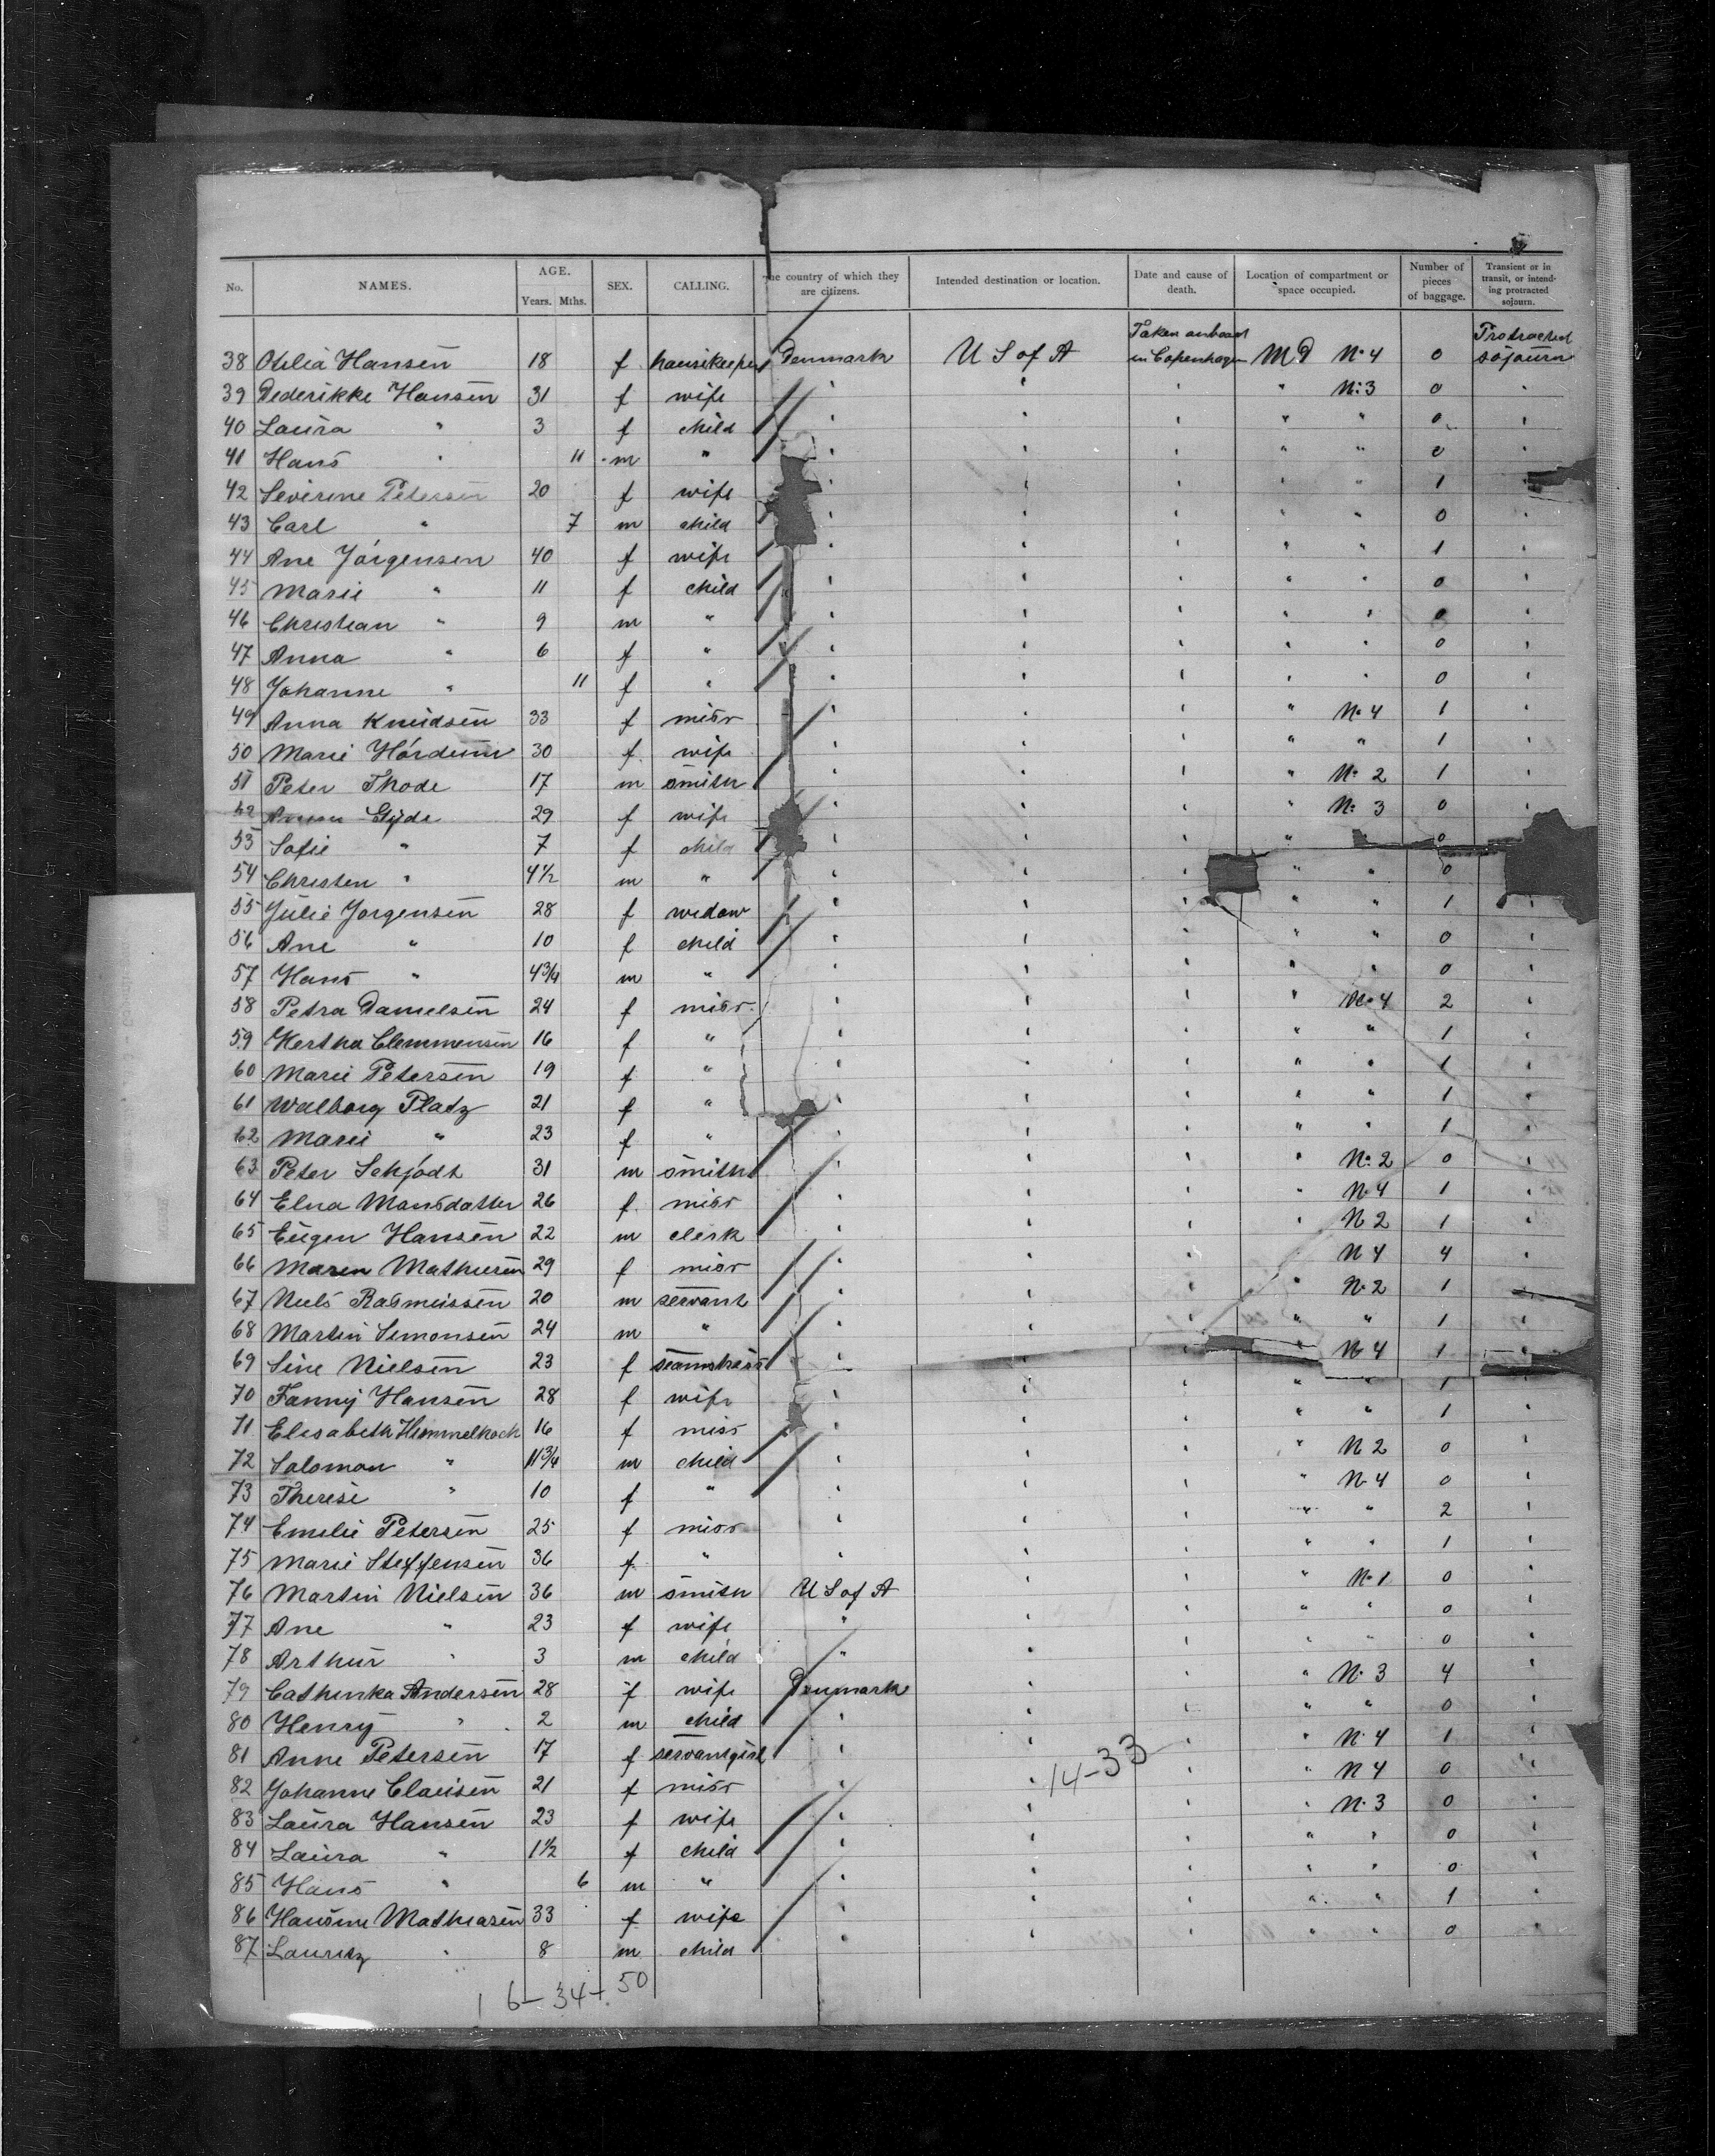 No. NAMES. AGE. Years. Mths. SEX. CALLING. he country of which they are citizens. Intended destination or location. Date and cause of death. Location of compartment or space occupied. Number of pieces of baggage. Transient or in transit, or intending protracted sojourn.
38 Otilia Hansen 18 f housekeeper Denmark U S of A Taken onboard in Copenhagen M D No 4 0 Protracted sojourn
39 Dederikke Hansen 31 f wife " " " " No 3 0 "
40 Laura " 3 f child " " " " " 0 "
41 Hans " 11 m " " " " " " 0 "
42 Severine Petersen 20 f wife " " " " " 1 "
43 Carl " 7 m child " " " " " 0 "
44 Ane Jörgensen 40 f wife " " " " " 1 "
45 Marie " 11 f child " " " " " 0 "
46 Christian " 9 m " " " " " " 0 "
47 Anna " 6 f " " " " " " 0 "
48 Johanne " 11 f " " " " " " 0 "
49 Anna Knudsen 33 f miss " " " " No 4 1 "
50 Marie Hördum 30 f wife " " " " " 1 "
51 Peter Thode 17 m smith " " " " No 2 1 "
52 Gyde 29 f wife " " " " No 3 0 "
53 Sofie " 7 f child " " " " 0
54 Christen " 4 1/2 m " " " " " " 0
55 Julie Jorgensen 28 f widow " " " " " 1 "
56 Ane " 10 f child " " " " " 0 "
57 Hans " 4 3/4 m " " " " " " 0 "
58 Petra Danielsen 24 f miss " " " " No 4 2 "
59 Hertha Clemmensen 16 f " " " " " " 1 "
60 Marie Petersen 19 f " " " " " " 1 "
61 Walborg Platz 21 f " " " " " " 1 "
62 Marie " 23 f " " " " " " 1 "
63 Peter Schjödt 31 m smith " " " " No 2 0 "
64 Elna Mansdatter 26 f miss " " " " N 4 1 "
65 Eugen Hansen 22 m clerk " " " " N 2 1 "
66 Maren Mathiesen 29 f miss " " " " N 4 4 "
67 Niels Rasmussen 20 m servant " " " " N 2 1 "
68 Martin Simonsen 24 m " " " " " " 1 "
69 Sine Nielsen 23 f seamstress " " " " N 4 1 "
70 Fanny Hansen 28 f wife " " " " " 1 "
71 Elisabeth Himmelhoch 16 f miss " " " " " 1 "
72 Salomon " 11 3/4 m child " " " " N 2 0 "
73 Therese " 10 f " " " " " N 4 0 "
74 Emilie Petersen 25 f miss " " " " " 2 "
75 Marie Steffensen 36 f " " " " " " 1 "
76 Martin Nielsen 36 m smith U S of A " " " No 1 0 "
77 Ane " 23 f wife " " " " " 0 "
78 Arthur " 3 m child " " " " " 0 "
79 Cathinka Andersen 28 f wife Denmark " " " N 3 4 "
80 Henry " 2 m child " " " " " 0 "
81 Anne Petersen 17 f servantgirl " " " " N 4 1 "
82 Johanne Clausen 21 f miss " " " " N 4 0 "
14-33
83 Laura Hansen 23 f wife " " " " N 3 0 "
84 Laura " 1 1/2 f child " " " " " 0 "
85 Hans " 6 m " " " " " " 0 "
86 Hansine Mathiasen 33 f wife " " " " " 1 "
87 Lauritz " 8 m child " " " " " 0 "
16-34+50